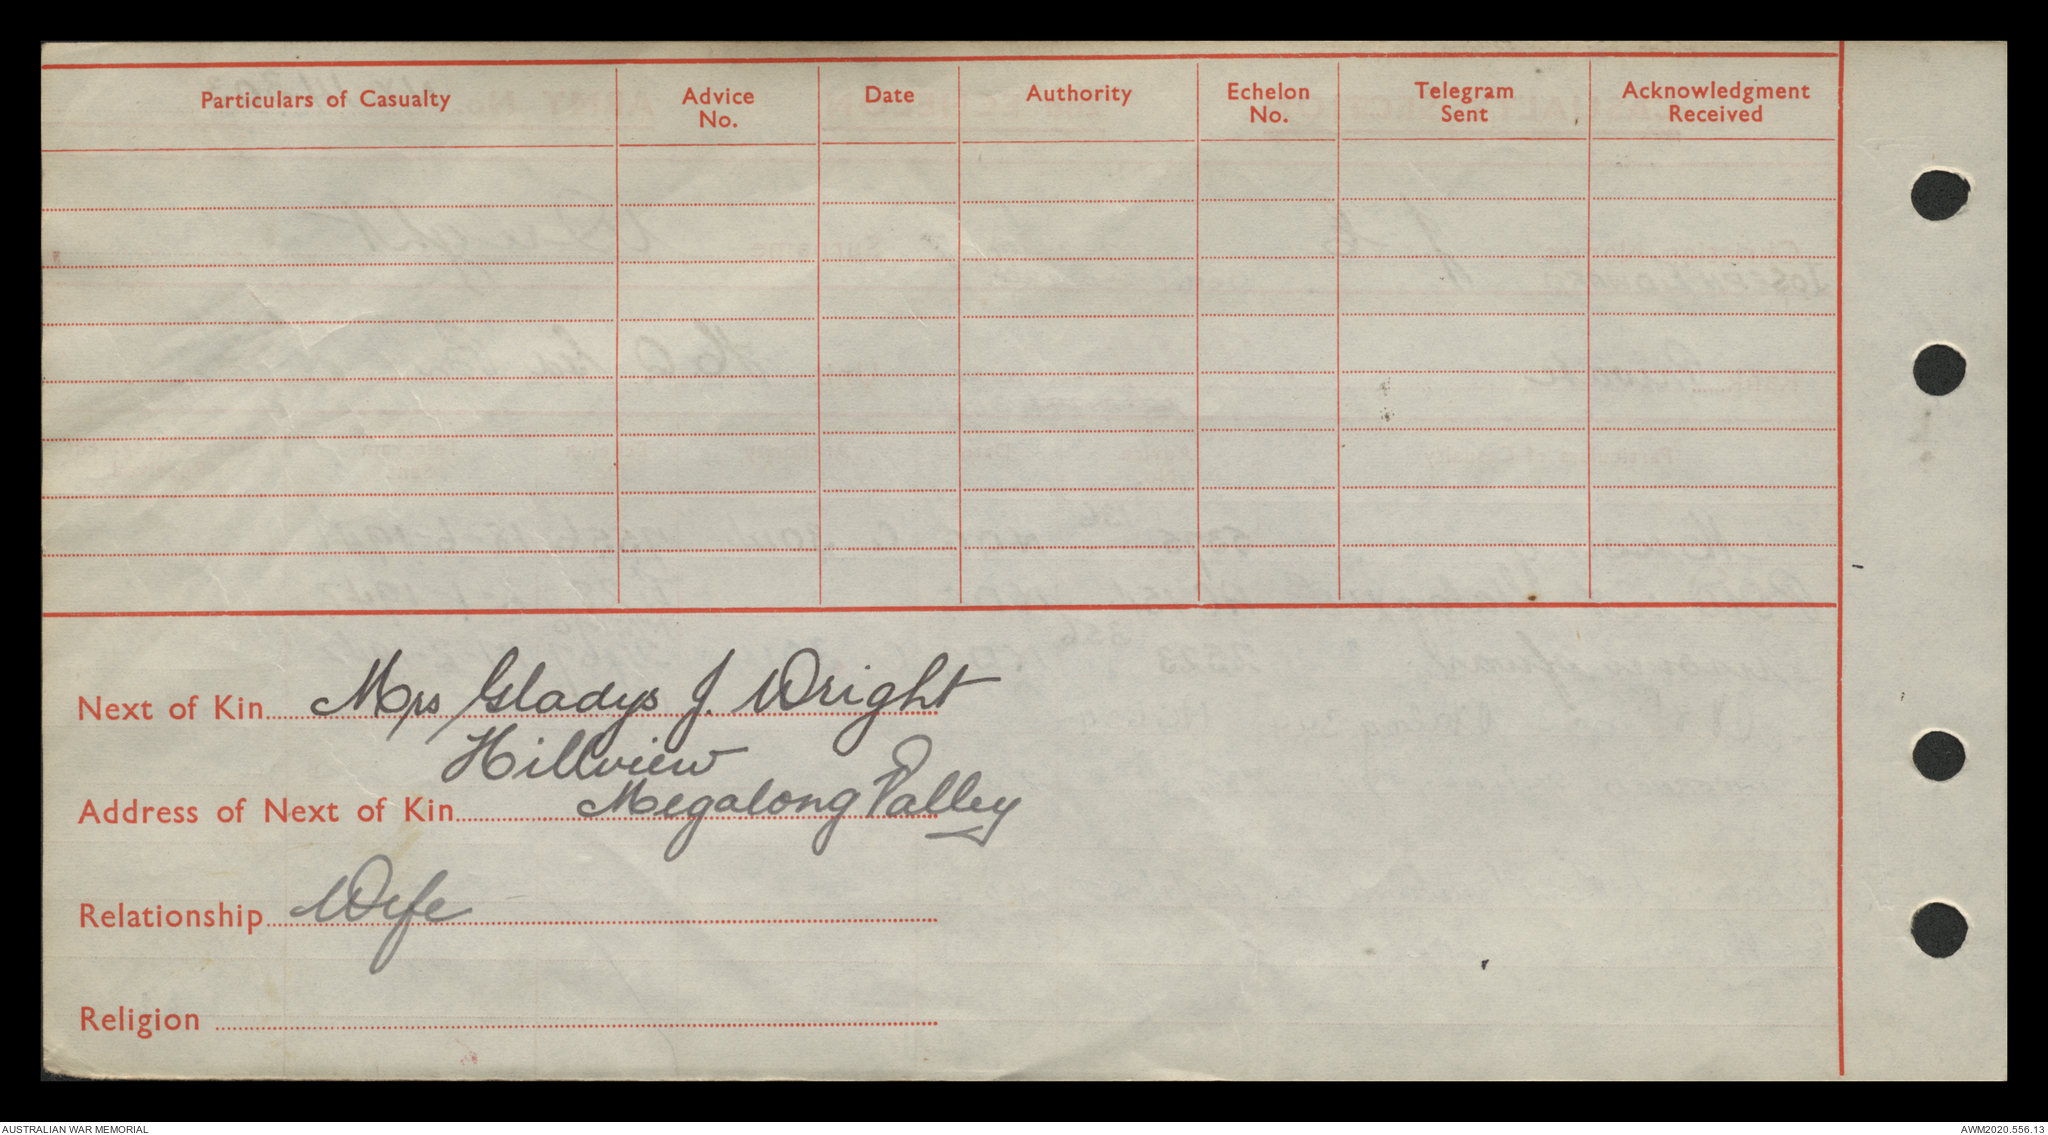 Particulars of Casualty Advice No. Date Authority Echelon No. Telegram Sent Acknowledgment Received
Next of Kin Mrs Gladys J. Wright
Hillview
Address of Next of Kin Megalong Valley
Relationship Wife
Religion
AUSTRALIAN WAR MEMORIAL AWM2020.556.13